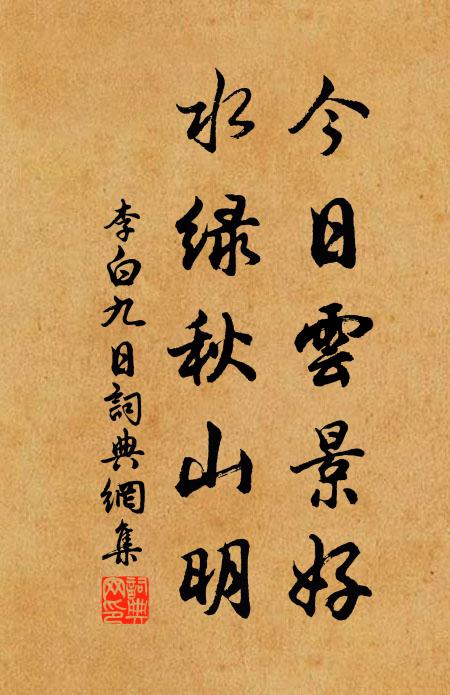 今日雲景好
水緑秋山明
李白九日詞典網集
詞典网印